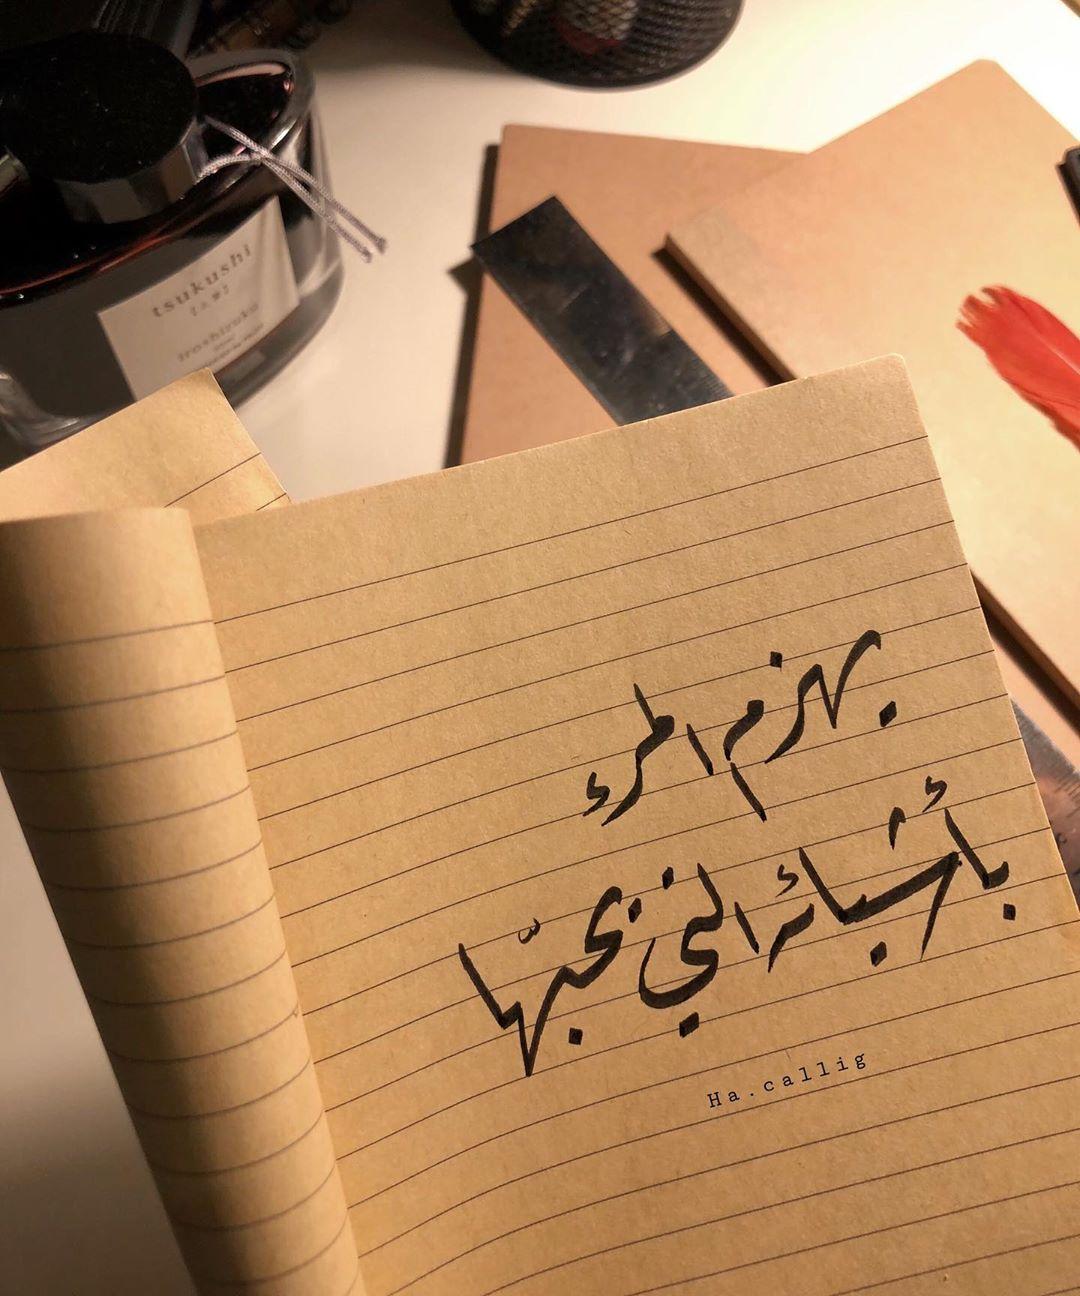 tsukushi
iroshizuku
يهزم المرء
بأشيائه التي يحبّها
Ha.callig